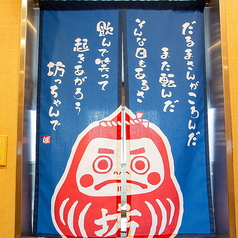 だるまさんがころんだ
また転んだ
そんな日もあるさ
飲んで笑って
起きあがろう
坊っちゃんで
坊